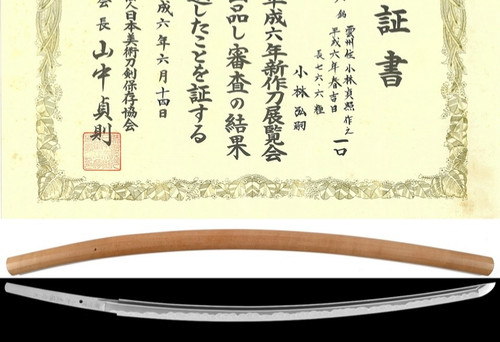 証書
銘 雲州住小林貞照作之 一口
平成六年春吉日
長七六、六糎
小林弘嗣
平成六年新作刀展覧会
出品し審査の結果
したことを証する
成六年六月十四日
人日本美術刀剣保存協会
会長 山中貞則